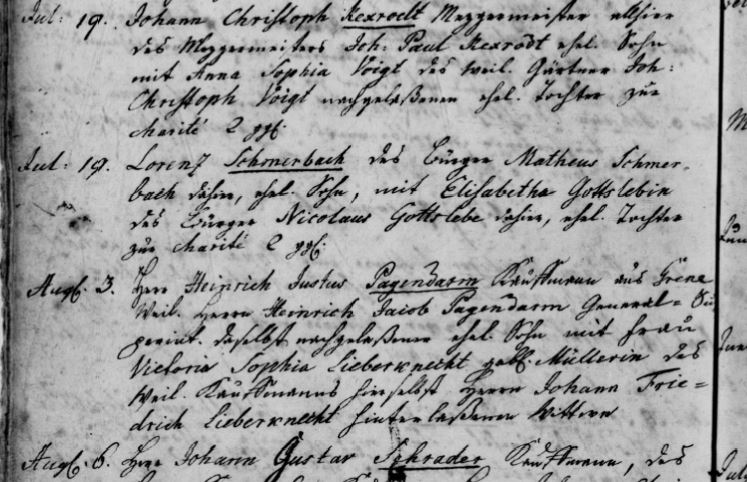 Jul: 19. Johann Christoph Rexrodt Mezgermeister allhier
des Mezgermeisters Joh: Paul Rexrodt ehel. Sohn
mit Anna Sophia Voigt des weil. Gärtner Joh:
Christoph Voigt nachgelaßenen ehel. Tochter zur
charité 2 ggl.
Jul: 19. Lorenz Schmerbach des Bürger Matheus Schmer-
bach dahier, ehel. Sohn, mit Elisabetha Gottslebin
des Bürger Nicolaus Gottslebe dahier, ehel. Tochter
zur charité 2 ggl.
Aug. 3. Herr Heinrich Justus Pagendarm Kauffmann aus Grene
weil. Herrn Heinrich Jacob Pagendarm General-Su
perint. daselbst nachgelaßener ehel. Sohn mit Frau
Victoria Sophia Lieberknecht geb. Müllerin des
weil. Kauffmanns hieselbst Herrn Johann Frie=
drich Lieberknecht hinterlaßenen Wittwe
Aug. 6. Herr Johann Gustav Schrader Kauffmann, des